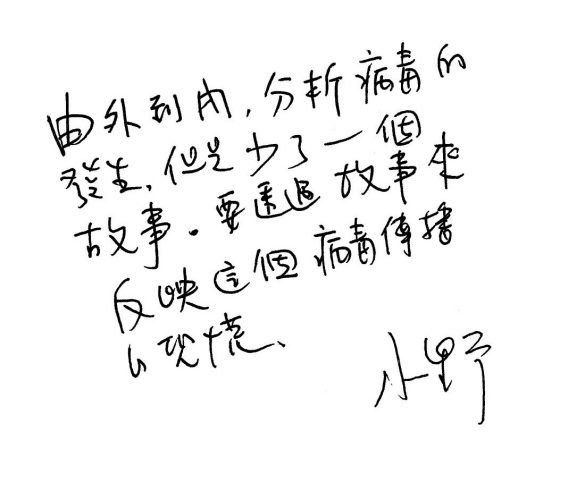 由外到內，分析病毒的
發生，但是少了一個
故事。要透過故事來
反映這個病毒傳播
的恐慌、
小野